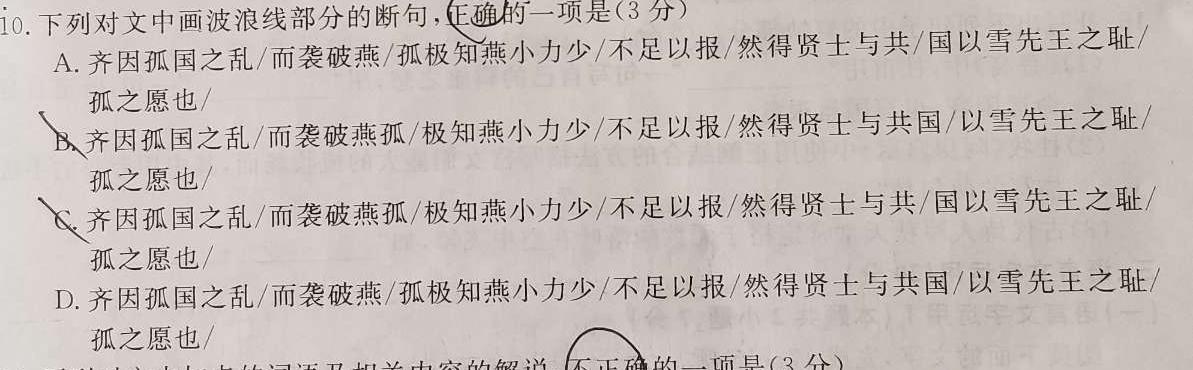 10. 下列对文中画波浪线部分的断句,正确的一项是(3 分)
A. 齐因孤国之乱/而袭破燕/孤极知燕小力少/不足以报/然得贤士与共/国以雪先王之耻/
孤之愿也/
B. 齐因孤国之乱/而袭破燕孤/极知燕小力少/不足以报/然得贤士与共国/以雪先王之耻/
孤之愿也/
C. 齐因孤国之乱/而袭破燕孤/极知燕小力少/不足以报/然得贤士与共/国以雪先王之耻/
孤之愿也/
D. 齐因孤国之乱/而袭破燕/孤极知燕小力少/不足以报/然得贤士与共国/以雪先王之耻/
孤之愿也/
的词语及相关内容的解说,不正确的一项是(3 分)